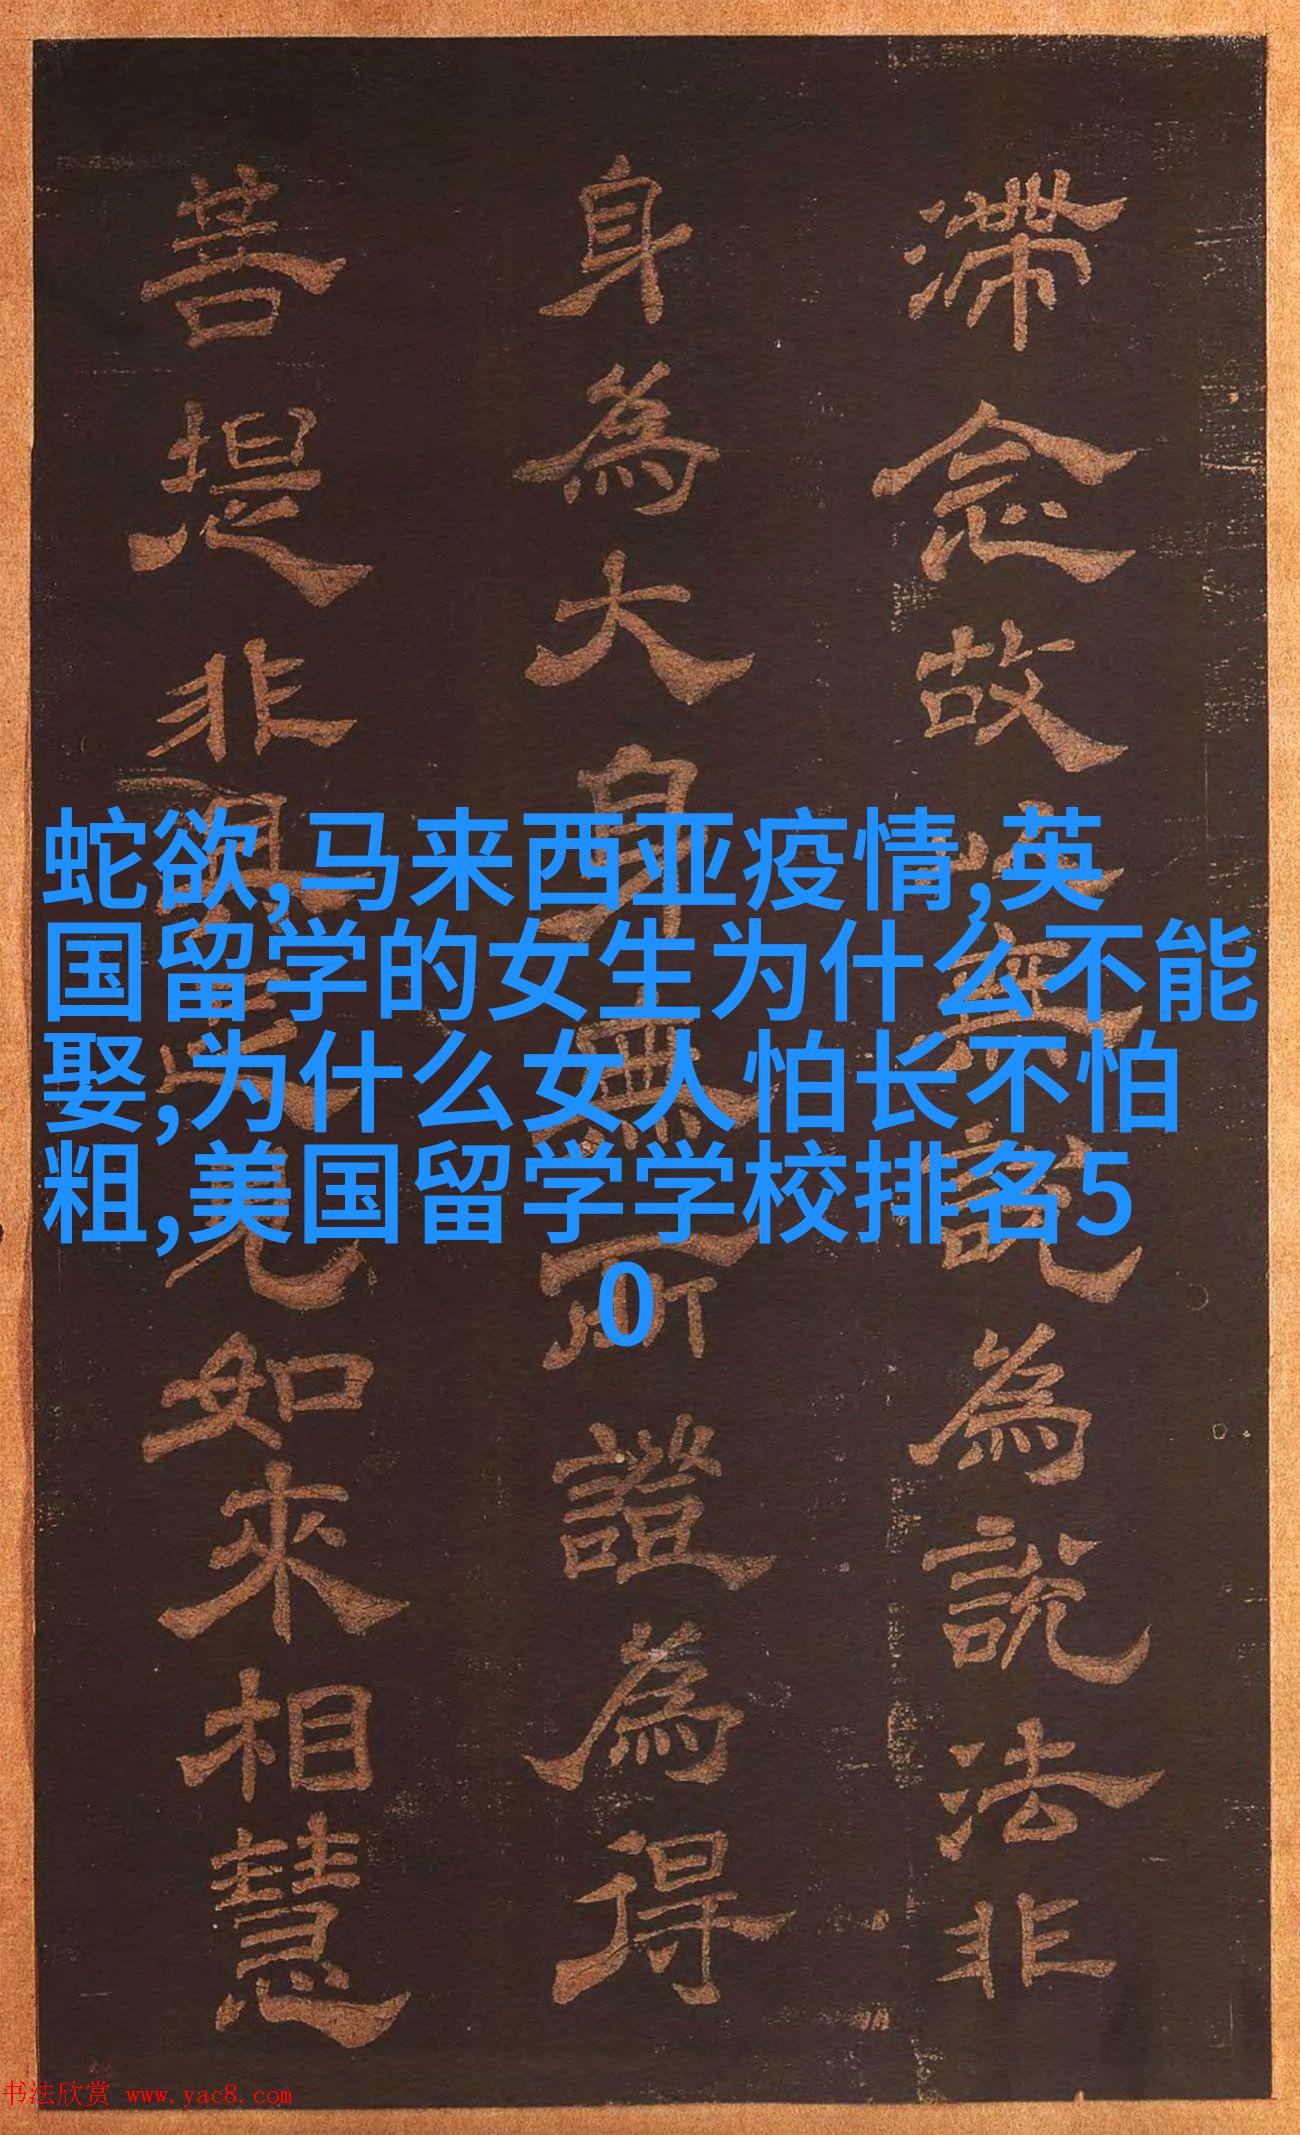 滯念故無說為說法非
身為大身無所證為得
菩提非具足見如來相慧
蛇欲,马来西亚疫情,英
国留学的女生为什么不能
娶,为什么女人怕长不怕
粗,美国留学学校排名5
0
书法欣赏 www.yac8.com